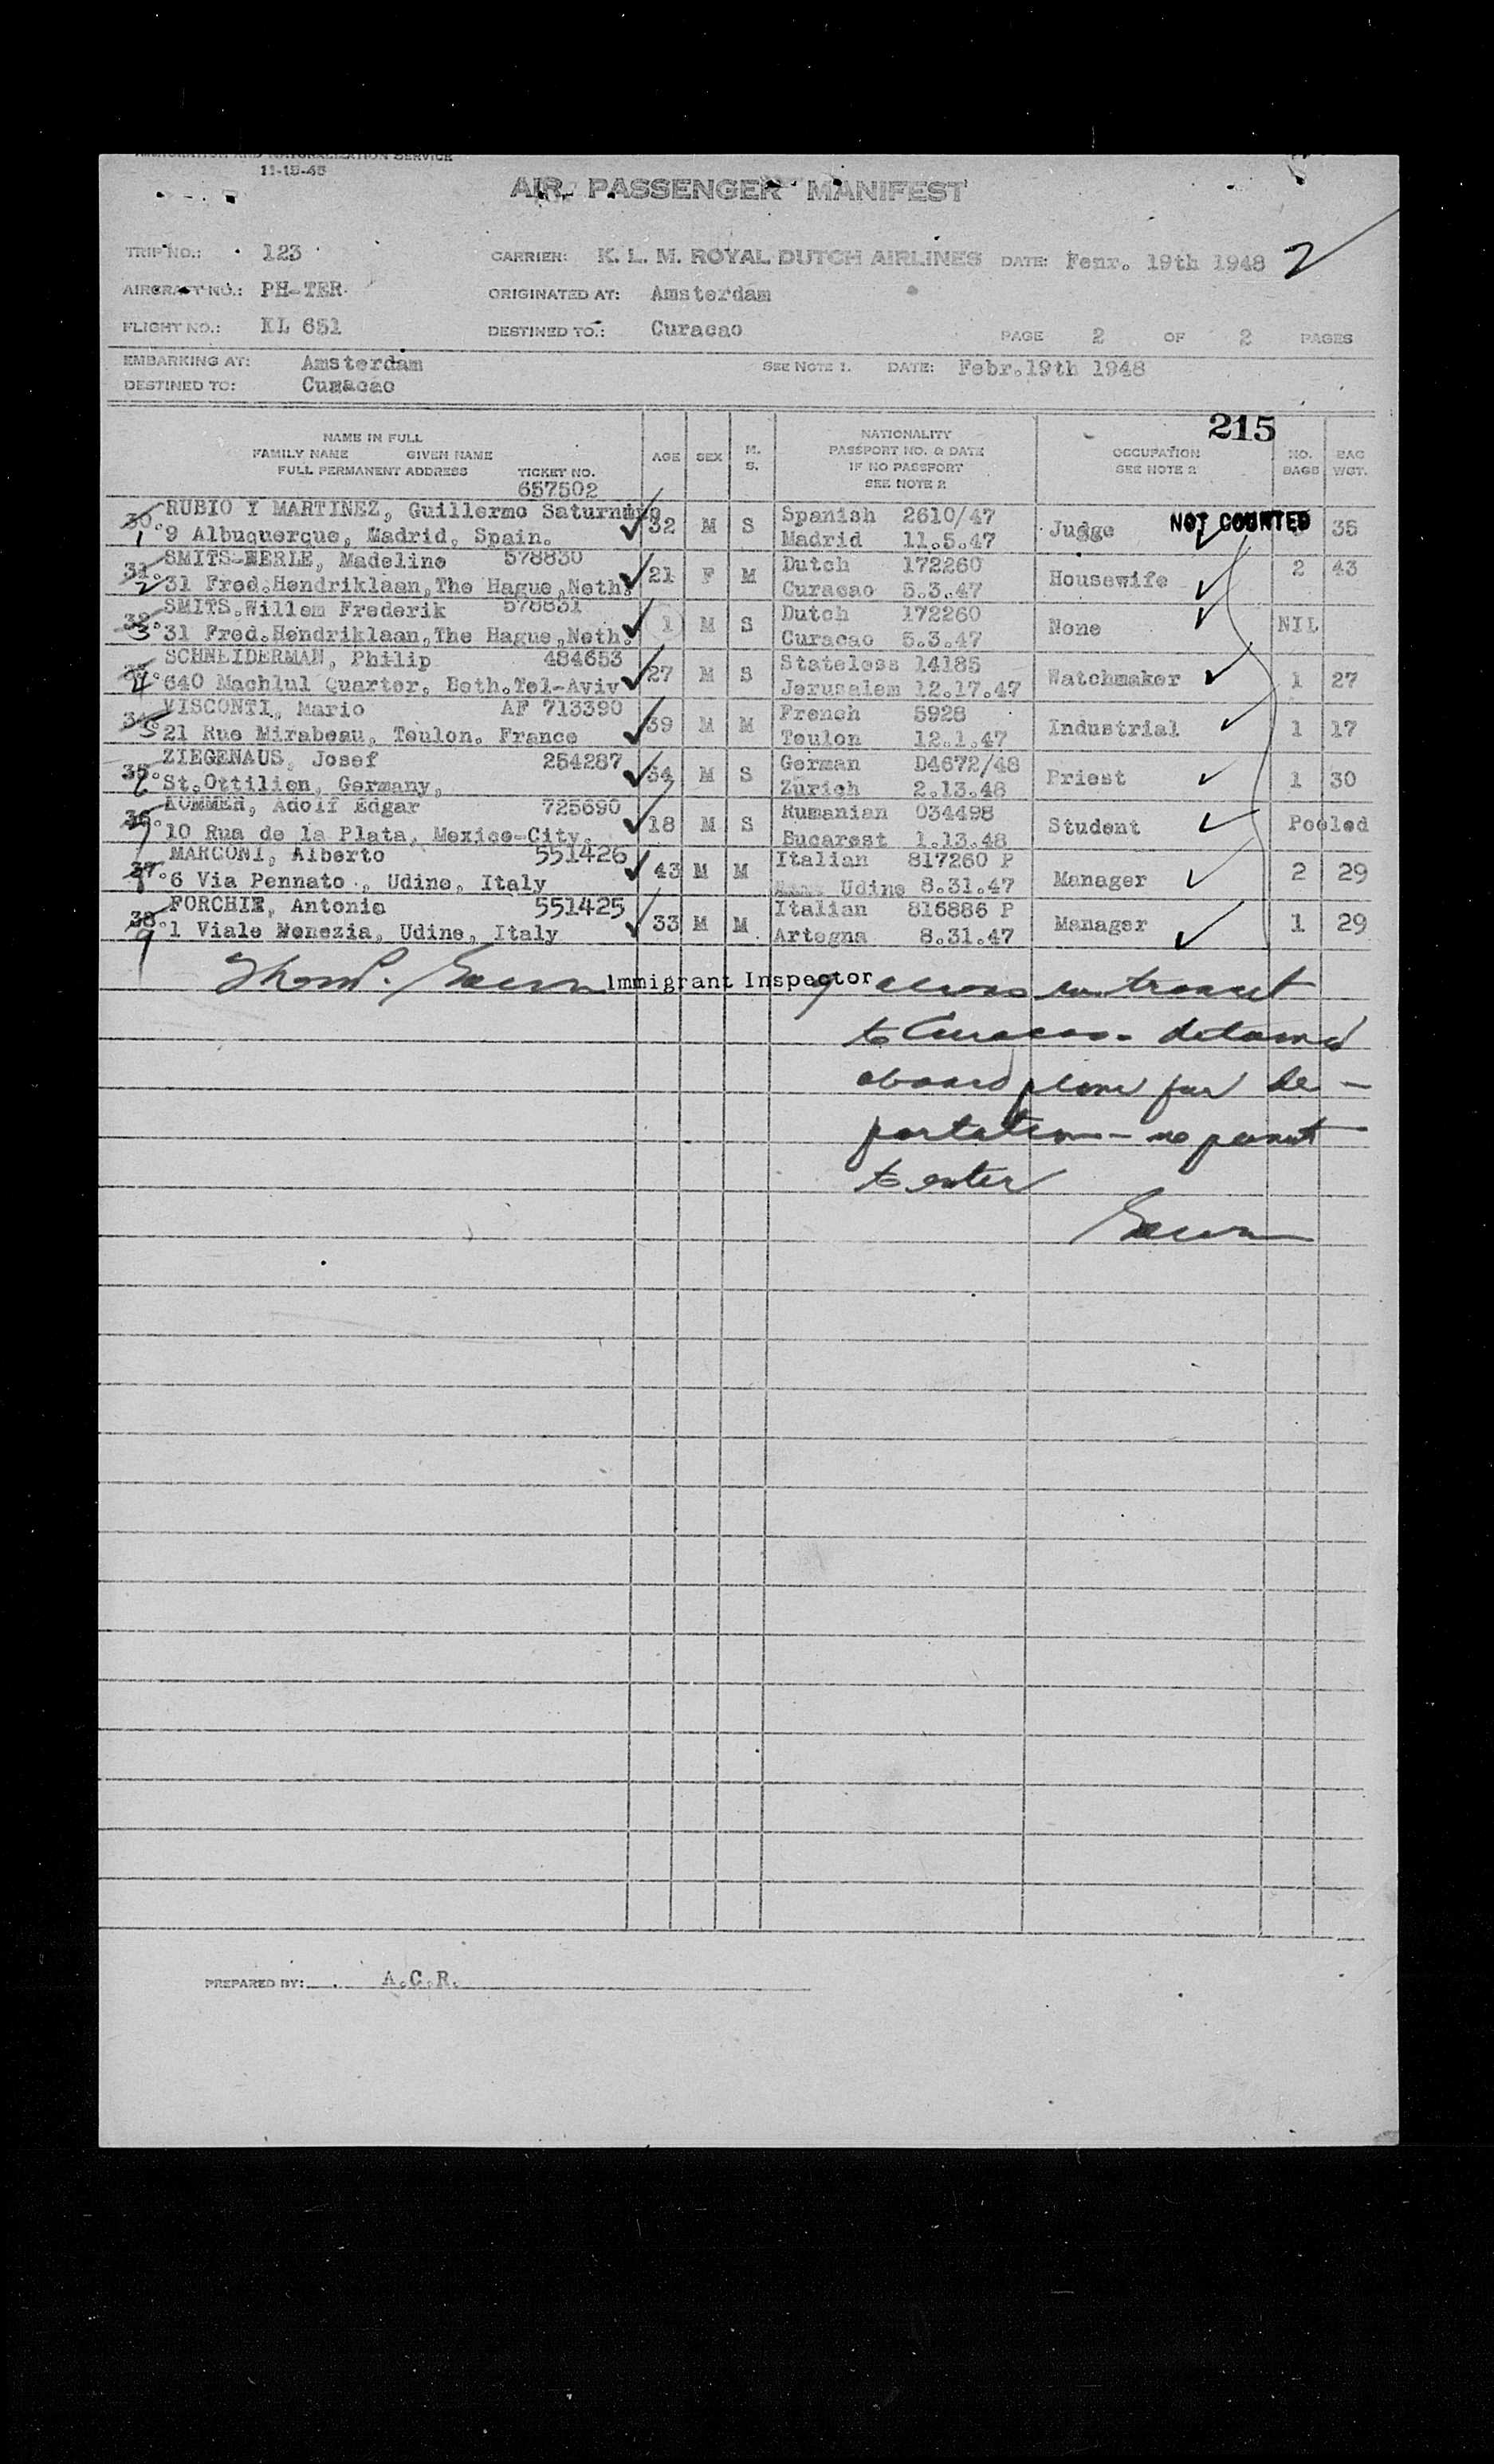 IMMIGRATION AND NATURALIZATION SERVICE
11-15-45
AIR PASSENGER MANIFEST
TRIP NO.: 123 CARRIER: K. L. M. ROYAL DUTCH AIRLINES DATE: Fenr. 19th 1948 2
AIRCRAFT NO.: PH-TER ORIGINATED AT: Amsterdam
FLIGHT NO.: KL 651 DESTINED TO.: Curacao PAGE 2 OF 2 PAGES
EMBARKING AT: Amsterdam SEE NOTE 1. DATE: Febr.19th 1948
DESTINED TO: Curacao
215
NAME IN FULL
FAMILY NAME GIVEN NAME
FULL PERMANENT ADDRESS TICKET NO.
AGE SEX M. S.
NATIONALITY
PASSPORT NO. & DATE
IF NO PASSPORT
SEE NOTE 2
OCCUPATION
SEE NOTE 2
NO. BAGS
BAG WGT.
657502
30. RUBIO Y MARTINEZ, Guillermo 32 M S Spanish 2610/47 Judge NOT COUNTED 35
1 9 Albuquerque, Madrid, Spain. Madrid 11.5.47
31. SMITS-MERLE, Madeline 578830 21 F M Dutch 172260 Housewife 2 43
2 31 Fred.Hendriklaan,The Hague,Neth. Curacao 5.3.47
32. SMITS.Willem Frederik 578831 1 M S Dutch 172260 None NIL
3 31 Fred.Hendriklaan,The Hague,Neth. Curacao 5.3.47
33. SCHNEIDERMAN, Philip 484653 27 M S Stateless 14185 Watchmaker 1 27
4 640 Machlul Quarter, Beth.Tel-Aviv Jerusalem 12.17.47
34. VISCONTI, Mario AF 713390 39 M M French 5928 Industrial 1 17
5 21 Rue Mirabeau, Toulon. France Toulon 12.1.47
35. ZIEGENAUS, Josef 254287 34 M S German D4672/48 Priest 1 30
6 St.Ottilien, Germany, Zurich 2.13.48
36. KUMMER, Adolf Edgar 725690 18 M S Rumanian 034498 Student Pooled
7 10 Rua de la Plata, Mexico-City. Bucarest 1.13.48
37. MARCONI, Alberto 551426 43 M M Italian 817260 P Manager 2 29
8 6 Via Pennato ., Udine, Italy Udine 8.31.47
38. FORCHIE, Antonio 551425 33 M M Italian 816886 P Manager 1 29
9 1 Viale Venezia, Udine, Italy Artegna 8.31.47
Immigrant Inspector 9 aliens in transit
to Curacao - detained
aboard plane for de-
portation - no permit
to enter
PREPARED BY: A.C.R.